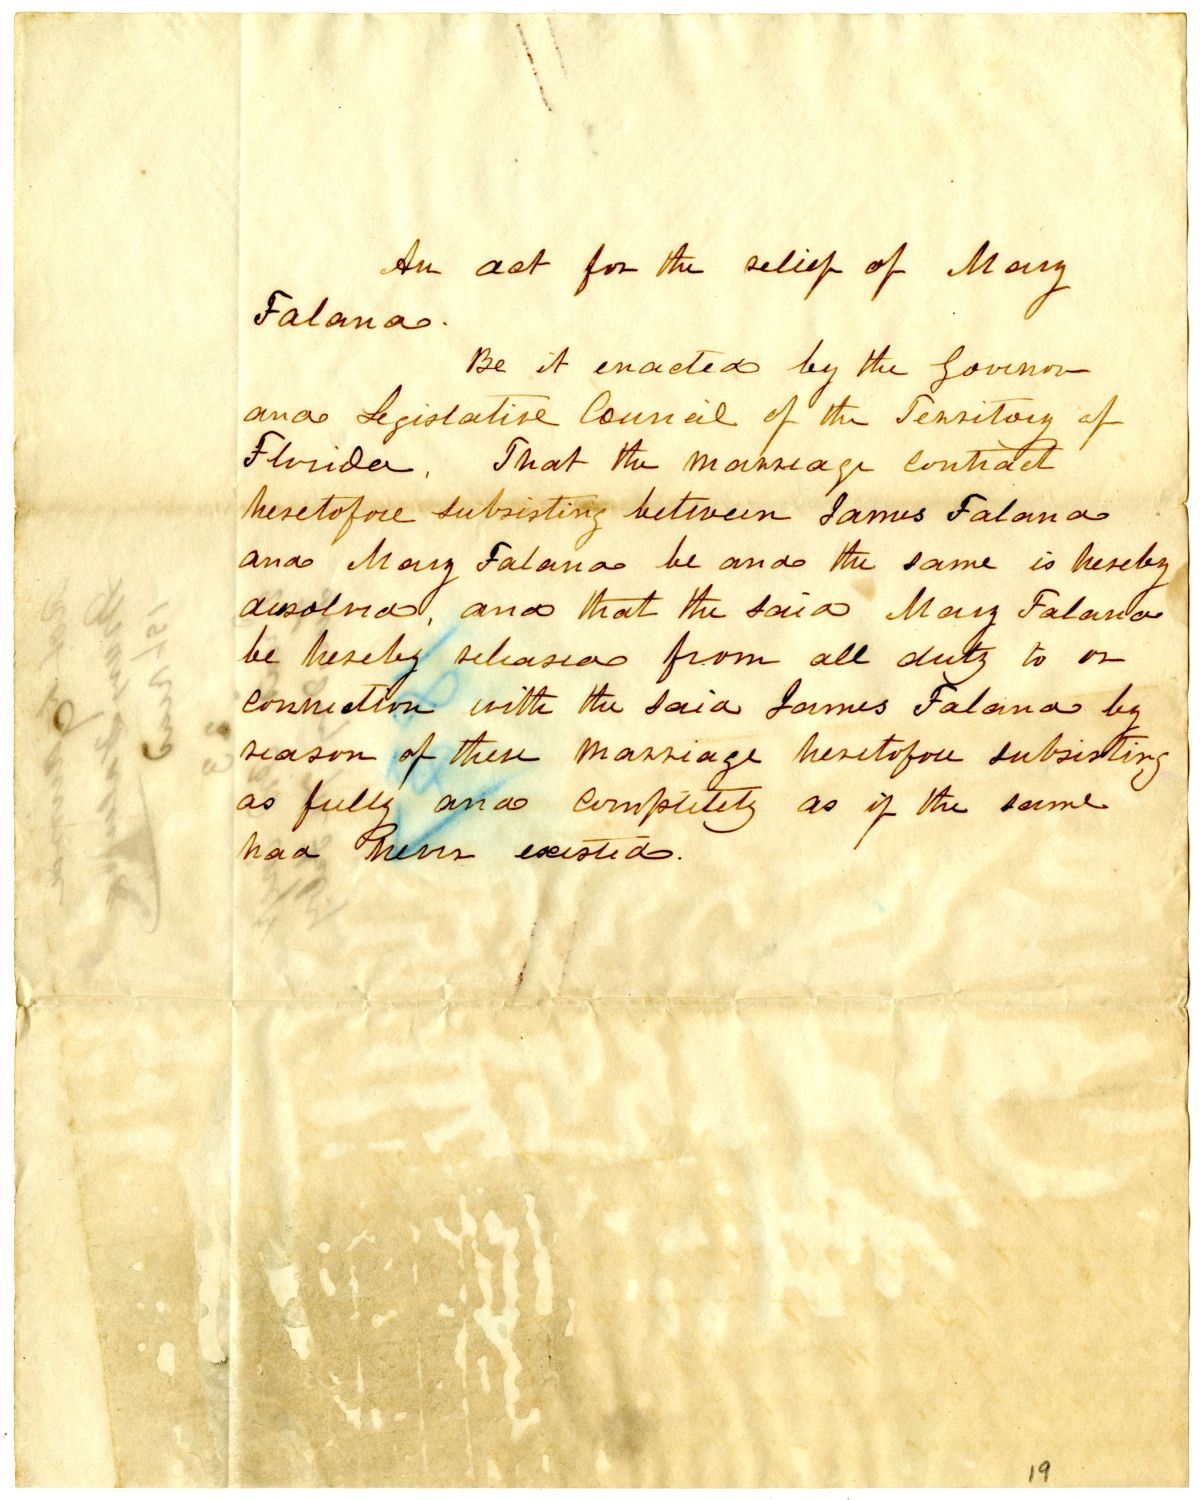 An act for the relief of Mary
Falana.
Be it enacted by the Govenor
and Legislative Council of the Territory of
Florida, That the marreage contract
heretofore subsisting between James Falana
and Mary Falana be and the same is hereby
desolved, and that the said Mary Falana
be hereby released from all duty to or
connection with the said James Falana by
reason of there marriage heretofore subsisting
as fully and completety as if the same
had never existed.
19